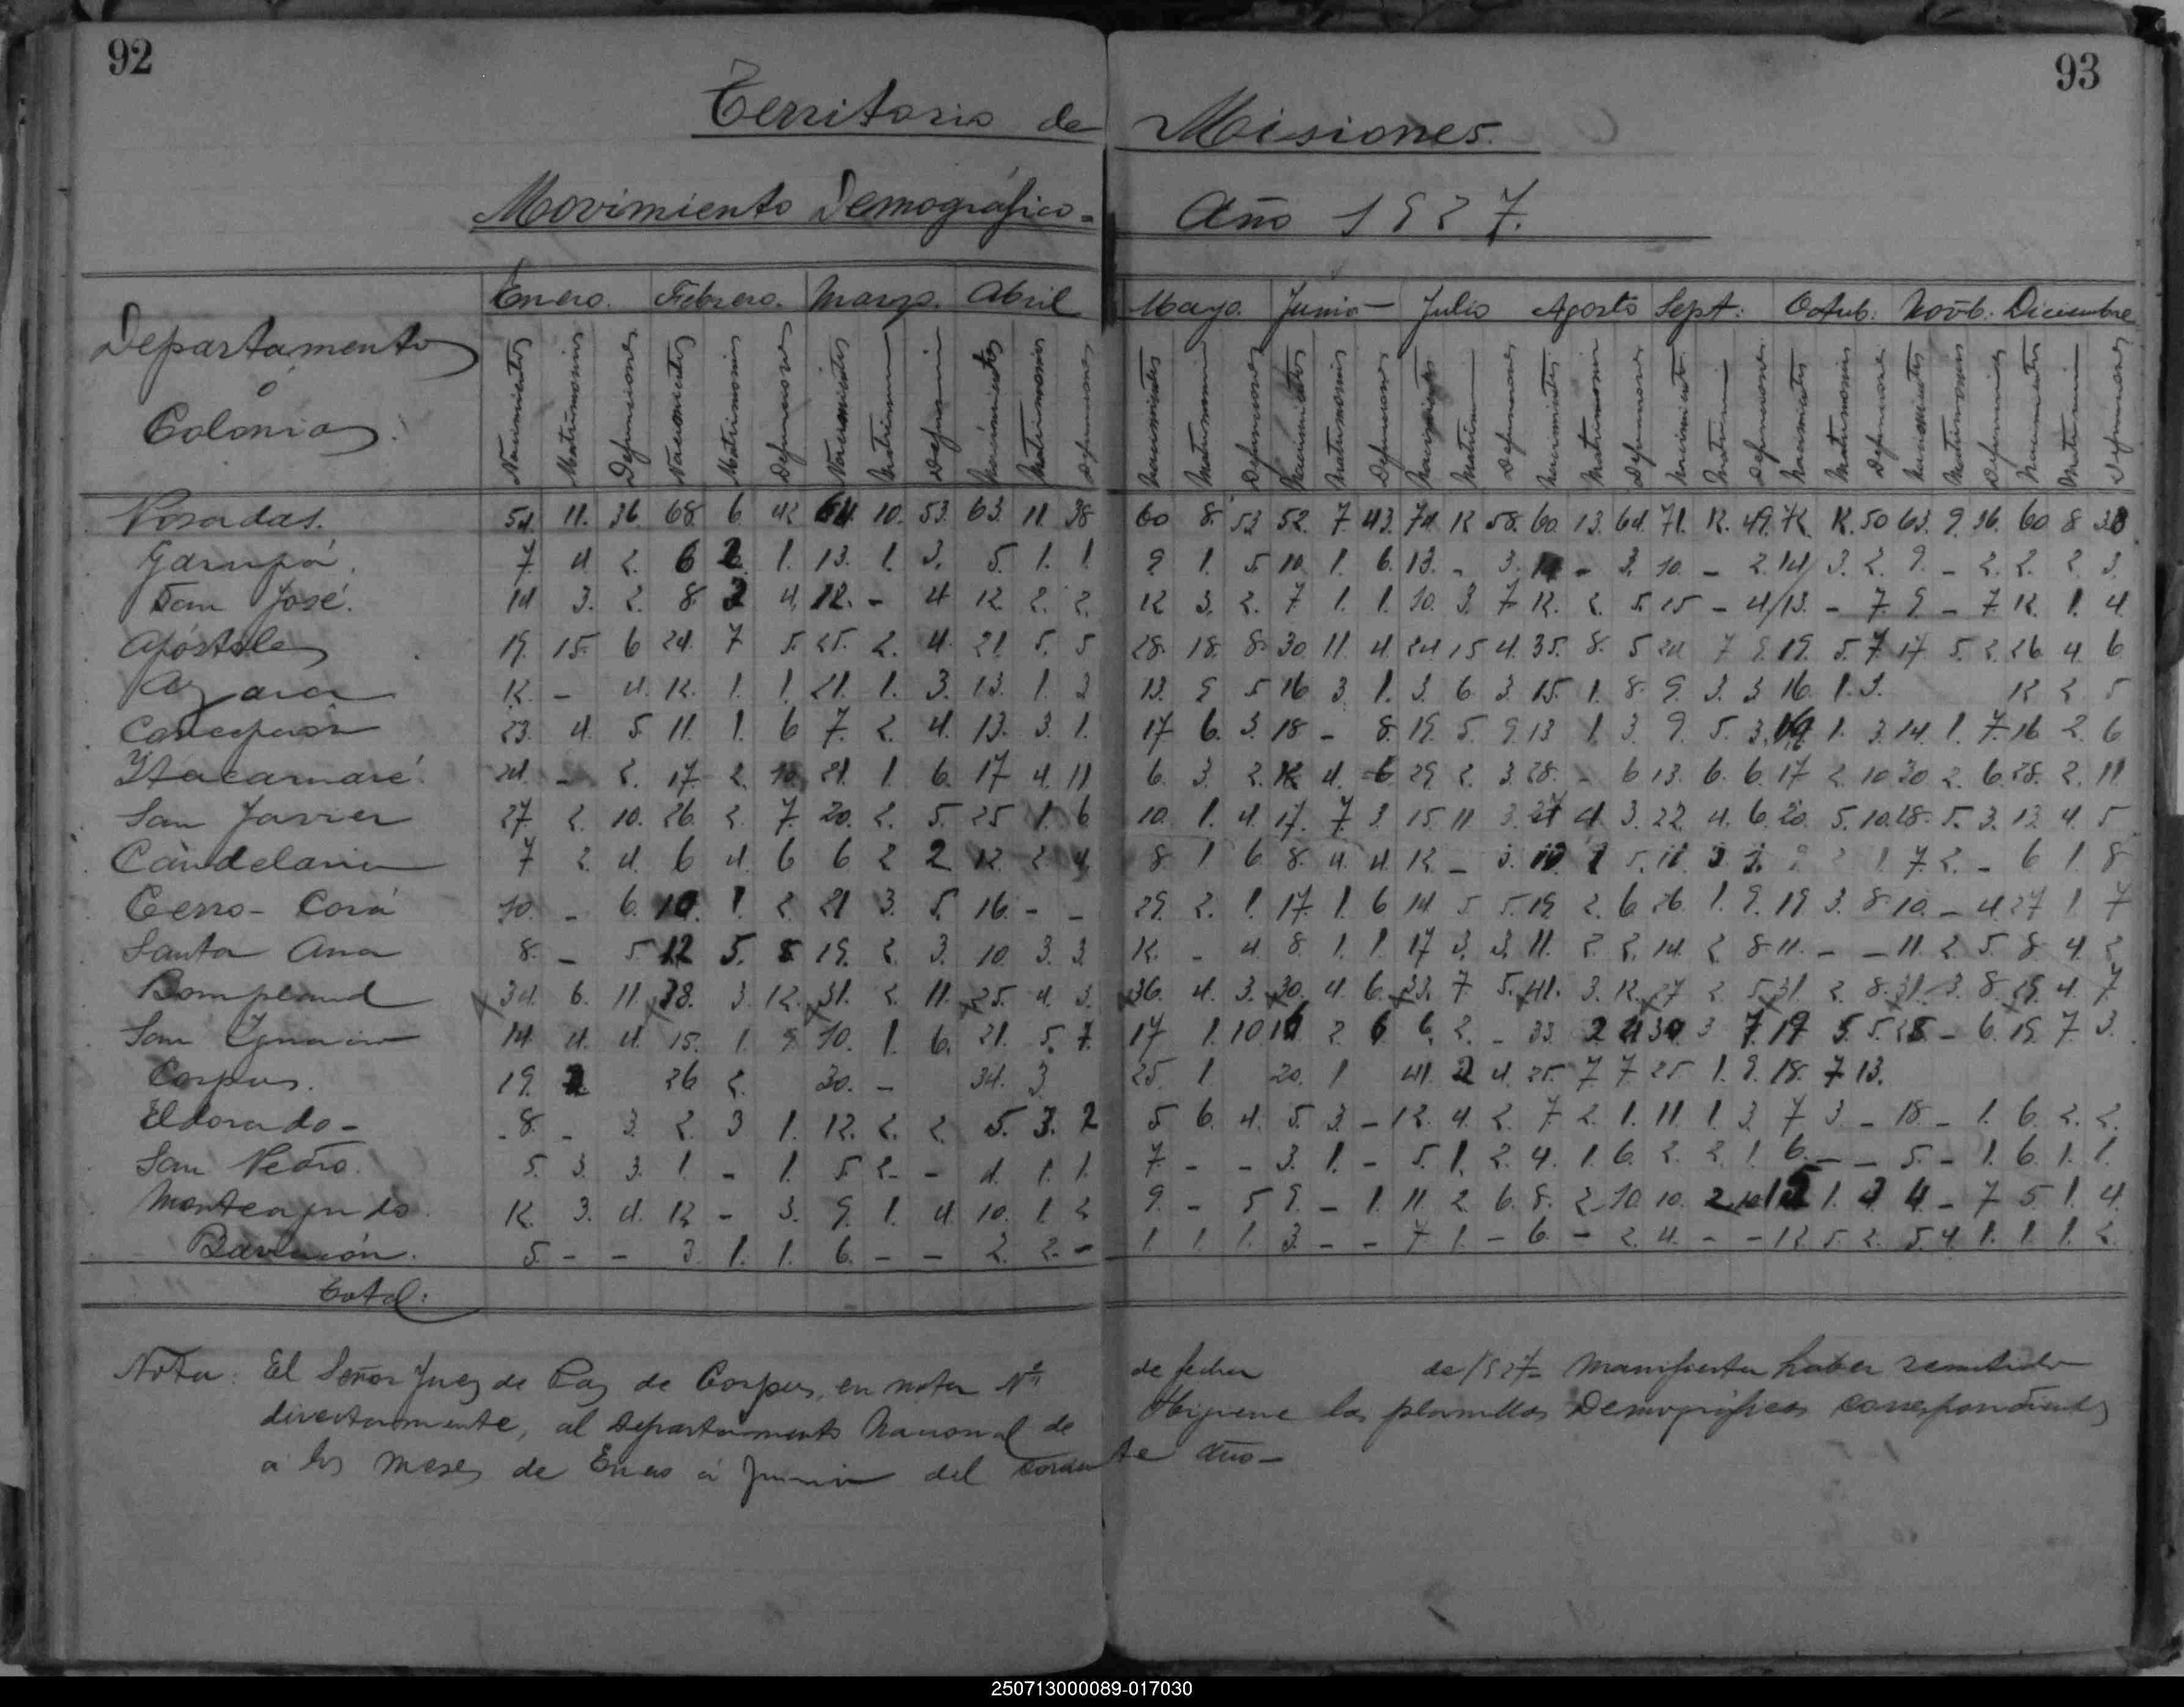 92
93
Territorio de Misiones.
Movimiento Demográfico - Año 1927.
Departamento ó Colonia.
Enero. Febrero. Marzo. Abril Mayo. Junio Julio Agosto Sept: Octub: Novb: Diciembre
Nacimientos Matrimonios Defunciones Nacimientos Matrimonios Defunciones Nacimientos Matrimonios Defunciones Nacimientos Matrimonios Defunciones
Posadas. 54 11. 36 68 6. 42 64 10. 53. 63. 11 38 60 8. 53 52. 7. 43. 74 12 58. 60. 13. 64. 71. 12. 49. 72. 12. 50 63. 9. 36. 60 8 38
Garupá. 7. 4 2. 6 2 1. 13. 1. 3. 5. 1. 1 9 1. 5. 10. 1. 6. 13. - 3. - 3. 10. - 2. 14 3. 2. 9. - 2. 2. 2 3.
San José. 14 3. 2. 8. 2 4. 12. - 4 12 2. 2. 12 3. 2. 7 1. 1. 10. 3. 7 12. 2. 5. 15 - 4 13. - 7. 9 - 7 12 1. 4
Apóstoles 19. 15. 6 24. 7 5. 25. 2. 4. 21. 5. 5 28. 18. 8. 30. 11. 4. 24 15 4. 35. 8. 5 24 7 9. 19. 5. 7. 17. 5. 2. 26 4 6
Azara 12. - 4. 12. 1. 1. 21. 1. 3. 13. 1. 3 13. 9 5 16 3 1. 3. 6. 3 15. 1. 8. 9. 3. 3 16. 1. 3. 12 2 5
Concepción 23. 4. 5 11. 1. 6 7. 2. 4. 13. 3. 1. 17 6. 3. 18 - 8. 19. 5. 9. 13 1. 3. 9. 5. 3. 1. 3. 14. 1. 7. 16 2. 6
Itacaruaré. 24. - 2. 17. 2. 10. 21. 1 6. 17 4. 11 6. 3. 2. 12 4. 6 29. 2. 3 28. - 6 13. 6. 6. 17 2. 10 30 2. 6. 28. 2. 11
San Javier 27. 2. 10. 26. 2. 7. 20. 2. 5. 25 1. 6 10. 1. 4. 17. 7. 3. 15. 11 3. 27 4 3. 22. 4. 6. 20. 5. 10. 28. 5. 3. 13 4. 5
Candelaria 7 2. 4. 6 4. 6 6 2 2 12. 2 4 8. 1 6. 8. 4. 4. 12 - 3. 5. 1. 7. 2. - 6 1. 8
Cerro-Corá 10. - 6. 10. 1. 2. 21 3. 5. 16. - - 29. 2. 1. 17. 1. 6 14 5 5. 19 2. 6 26. 1. 9. 19 3. 8. 10. - 4. 27 1 7
Santa Ana 8. - 5 12 5. 8 19. 2. 3. 10. 3. 3. 12. - 4. 8. 1. 1. 17 3. 3. 11. 2. 2. 14. 2 8. 11. - - 11. 2. 5. 8. 4. 2
Bompland 34. 6. 11 38. 3. 12. 31. 2. 11. 25. 4. 3. 36. 4. 3. 30. 4 6. 33. 7. 5. 41. 3. 12. 27 2. 5. 31 2. 8. 31. 3. 8. 29. 4. 7
San Ygnacio 14 4. 4. 15. 1. 9 10. 1. 6. 21. 5. 7. 17 1. 10. 16 2. 6 6. 2. - 33. 2 4 30 3 7. 19 5. 5. 28 - 6. 19. 7. 3.
Corpus. 19. 2 26 2. 30. - 34. 3 25. 1. 20. 1 41. 2 4. 25. 7 7 25 1. 9. 18. 7 13.
Eldorado - 8. - 3. 2. 3 1. 12. 2. 2. 5. 3. 2 5 6. 4. 5. 3. - 12. 4. 2. 7. 2. 1. 11 1. 3. 7 3 - 18. - 1. 6. 2. 2.
San Pedro. 5. 3. 3. 1. - 1. 5 2 - 4. 1. 1. 7. - - 3. 1. - 5. 1. 2. 4. 1. 6. 2. 2. 1. 6. - - 5. - 1. 6. 1. 1.
Monteagudo. 12. 3. 4. 12 - 3. 9. 1. 4. 10. 1. 2 9. - 5 9. - 1. 11. 2 6. 8. 2. 10. 10. 2 1. 4 - 7 5 1. 4.
Barracón. 5. - - 3. 1. 1. 6. - - 2. 2. - 1. 1. 1. 3. - - 7 1. - 6. - 2. 4. - - 12 5. 2. 5. 4. 1. 1. 1. 2.
Total:
Nota: El Señor Juez de Paz de Corpus, en nota Nº de fecha de 1927- manifiesta haber remitido
directamente, al Departamento Nacional de Higiene las planillas Demográficas correspondientes
a los meses de Enero á Junio del corriente año-
250713000089-017030